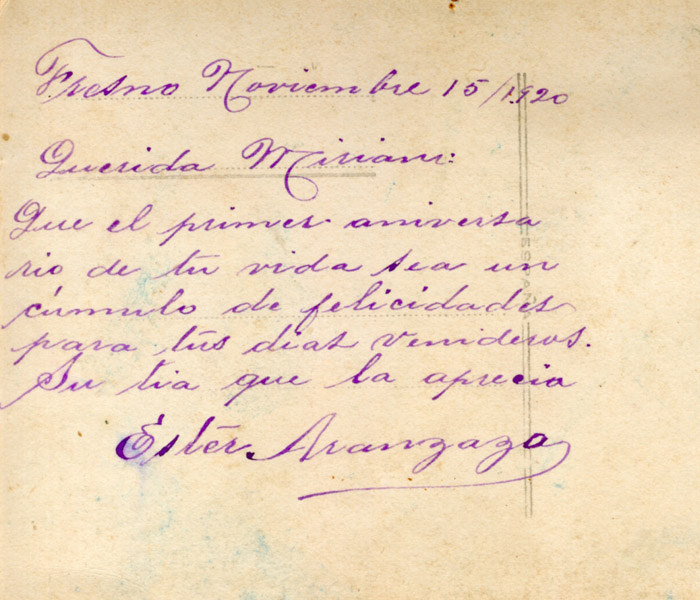 Fresno Noviembre 15/1920
Querida Miriam:
Que el primer aniversa
rio de tu vida sea un
cúmulo de felicidades
para tus dias venideros.
Su tia que la aprecia
Ester Aranzazo
ESPAÑA